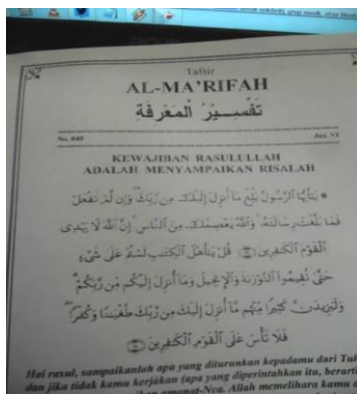 Tafsir
AL-MA'RIFAH
تَفْسِيْرُ الْمَعْرِفَةِ
No. 049 Juz. VI
KEWAJIBAN RASULULLAH
ADALAH MENYAMPAIKAN RISALAH
يَٰٓأَيُّهَا ٱلرَّسُولُ بَلِّغْ مَآ أُنزِلَ إِلَيْكَ مِن رَّبِّكَ وَإِن لَّمْ تَفْعَلْ
فَمَا بَلَّغْتَ رِسَالَتَهُۥ وَٱللَّهُ يَعْصِمُكَ مِنَ ٱلنَّاسِ إِنَّ ٱللَّهَ لَا يَهْدِى
ٱلْقَوْمَ ٱلْكَٰفِرِينَ قُلْ يَٰٓأَهْلَ ٱلْكِتَٰبِ لَسْتُمْ عَلَىٰ شَىْءٍ
حَتَّىٰ تُقِيمُوا۟ ٱلتَّوْرَىٰةَ وَٱلْإِنجِيلَ وَمَآ أُنزِلَ إِلَيْكُم مِّن رَّبِّكُمْ
وَلَيَزِيدَنَّ كَثِيرًا مِّنْهُم مَّآ أُنزِلَ إِلَيْكَ مِن رَّبِّكَ طُغْيَٰنًا وَكُفْرًا
فَلَا تَأْسَ عَلَى ٱلْقَوْمِ ٱلْكَٰفِرِينَ
Hai rasul, sampaikanlah apa yang diturunkan kepadamu dari
dan jika tidak kamu kerjakan (apa yang diperintahkan itu, berarti
amanat-Nya. Allah memelihara kamu